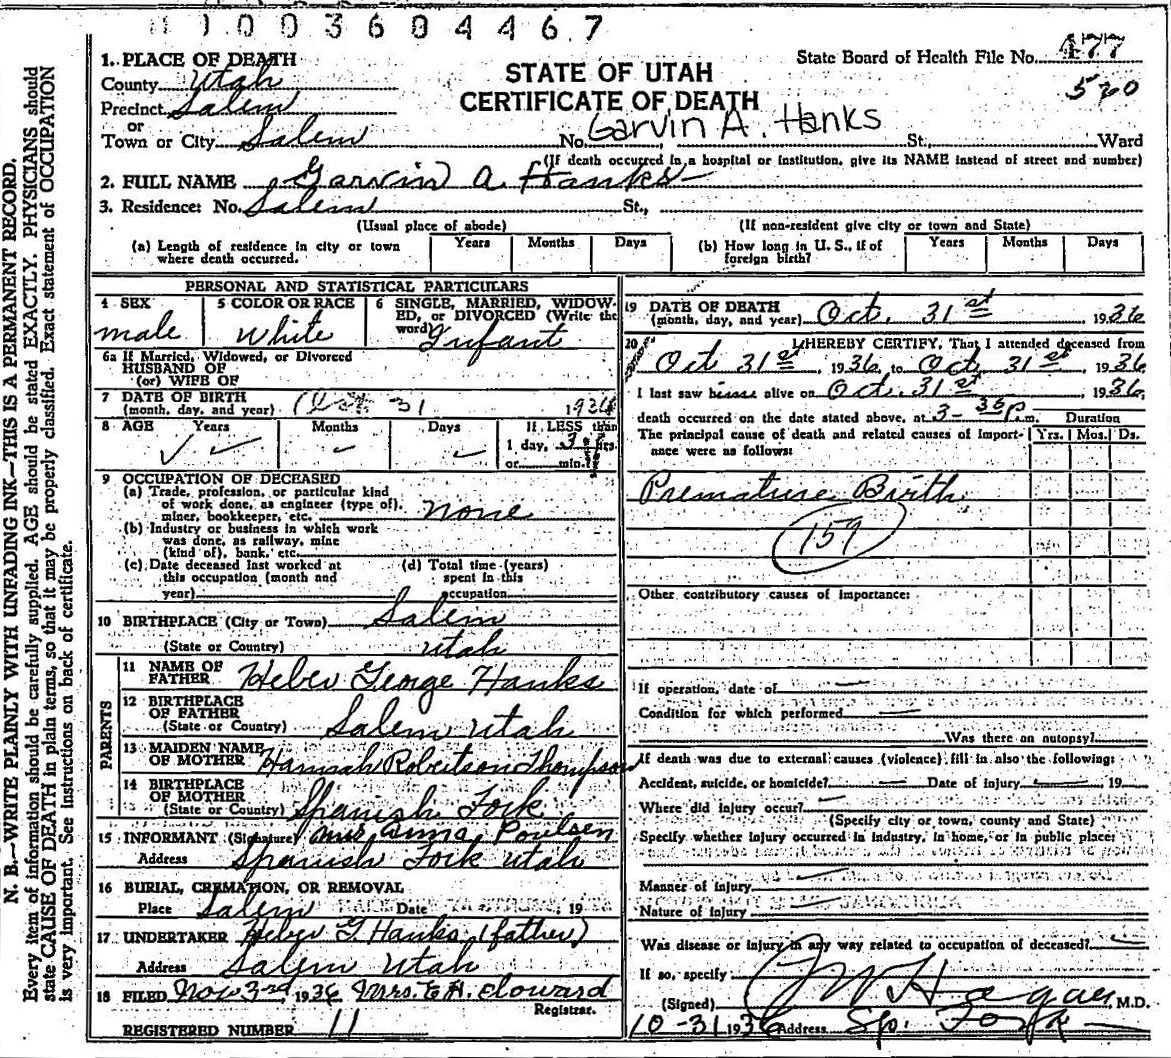 1003604467
1. PLACE OF DEATH
County Utah
Precinct Salem
or
Town or City Salem
STATE OF UTAH
CERTIFICATE OF DEATH
State Board of Health File No. 477
520
No. Garvin A. Hanks St., Ward
(If death occurred in a hospital or institution, give its NAME instead of street and number)
2. FULL NAME Garvin A. Hanks
3. Residence: No. Salem St.,
(Usual place of abode) (If non-resident give city or town and State)
(a) Length of residence in city or town where death occurred. Years Months Days
(b) How long in U. S., if of foreign birth? Years Months Days
PERSONAL AND STATISTICAL PARTICULARS
4 SEX
male
5 COLOR OR RACE
White
6 SINGLE, MARRIED, WIDOWED, OR DIVORCED (Write the word)
Infant
6a If Married, Widowed, or Divorced
HUSBAND OF
(or) WIFE OF
7 DATE OF BIRTH
(month, day, and year) Oct. 31 1936
8 AGE Years Months Days If LESS than
1 day, 3 hrs.
or min.
9 OCCUPATION OF DECEASED
(a) Trade, profession, or particular kind
of work done, as engineer (type of),
miner, bookkeeper, etc. none
(b) Industry or business in which work
was done, as railway, mine
(kind of), bank, etc.
(c) Date deceased last worked at
this occupation (month and
year)
(d) Total time (years)
spent in this
occupation
10 BIRTHPLACE (City or Town) Salem
(State or Country) Utah
PARENTS
11 NAME OF
FATHER Heber George Hanks
12 BIRTHPLACE
OF FATHER
(State or Country) Salem Utah
13 MAIDEN NAME
OF MOTHER Hannah Robertson Thompson
14 BIRTHPLACE
OF MOTHER
(State or Country) Spanish Fork
15 INFORMANT (Signature) Mrs Anna Poulsen
Address Spanish Fork Utah
16 BURIAL, CREMATION, OR REMOVAL
Place Salem Date 19
17 UNDERTAKER Heber G. Hanks (father)
Address Salem Utah
18 FILED Nov 3rd, 1936 Mrs. E. H. Howard
Registrar.
REGISTERED NUMBER 11
19 DATE OF DEATH
(month, day, and year) Oct. 31st, 1936
20 I HEREBY CERTIFY, That I attended deceased from
Oct 31st, 1936, to Oct. 31st, 1936
I last saw him alive on Oct. 31st, 1936,
death occurred on the date stated above, at 3-30 P.m. Duration
The principal cause of death and related causes of importance were as follows: Yrs. Mos. Ds.
Premature Birth
159
Other contributory causes of importance:
If operation, date of
Condition for which performed
Was there an autopsy?
If death was due to external causes (violence) fill in also the following:
Accident, suicide, or homicide? Date of injury , 19
Where did injury occur?
(Specify city or town, county and State)
Specify whether injury occurred in industry, in home, or in public place:
Manner of injury
Nature of injury
Was disease or injury in any way related to occupation of deceased?
If so, specify
(Signed) J W Hagan, M.D.
10-31 1936 Address Sp. Fork
N. B.—WRITE PLAINLY WITH UNFADING INK—THIS IS A PERMANENT RECORD.
Every item of information should be carefully supplied. AGE should be stated EXACTLY. PHYSICIANS should
state CAUSE OF DEATH in plain terms, so that it may be properly classified. Exact statement of OCCUPATION
is very important. See instructions on back of certificate.